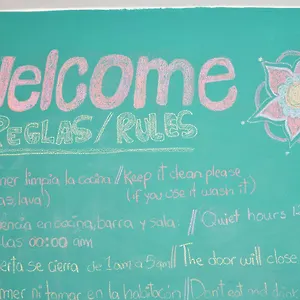 Welcome
REGLAS/RULES
ner limpia la cocina // Keep it clean please
as, lava) (if you use it wash it)
encia en cocina, barra y sala. // Quiet hours 1
las 00:00 am
erta se cierra de 1am a 5am // The door will close
mer ni tomar en la habitación // Don't eat and d